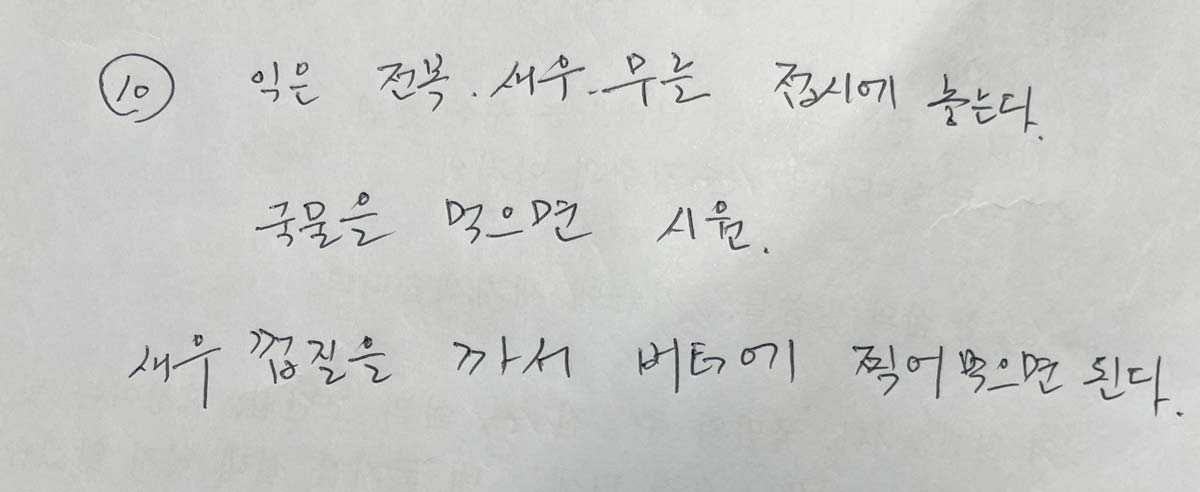 ⑩ 익은 전복. 새우. 무를 접시에 놓는다.
국물을 먹으면 시원.
새우 껍질을 까서 버터에 찍어먹으면 된다.